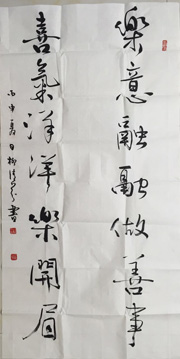 樂意融融做善事
喜氣洋洋樂開眉
丙申夏日柳
書